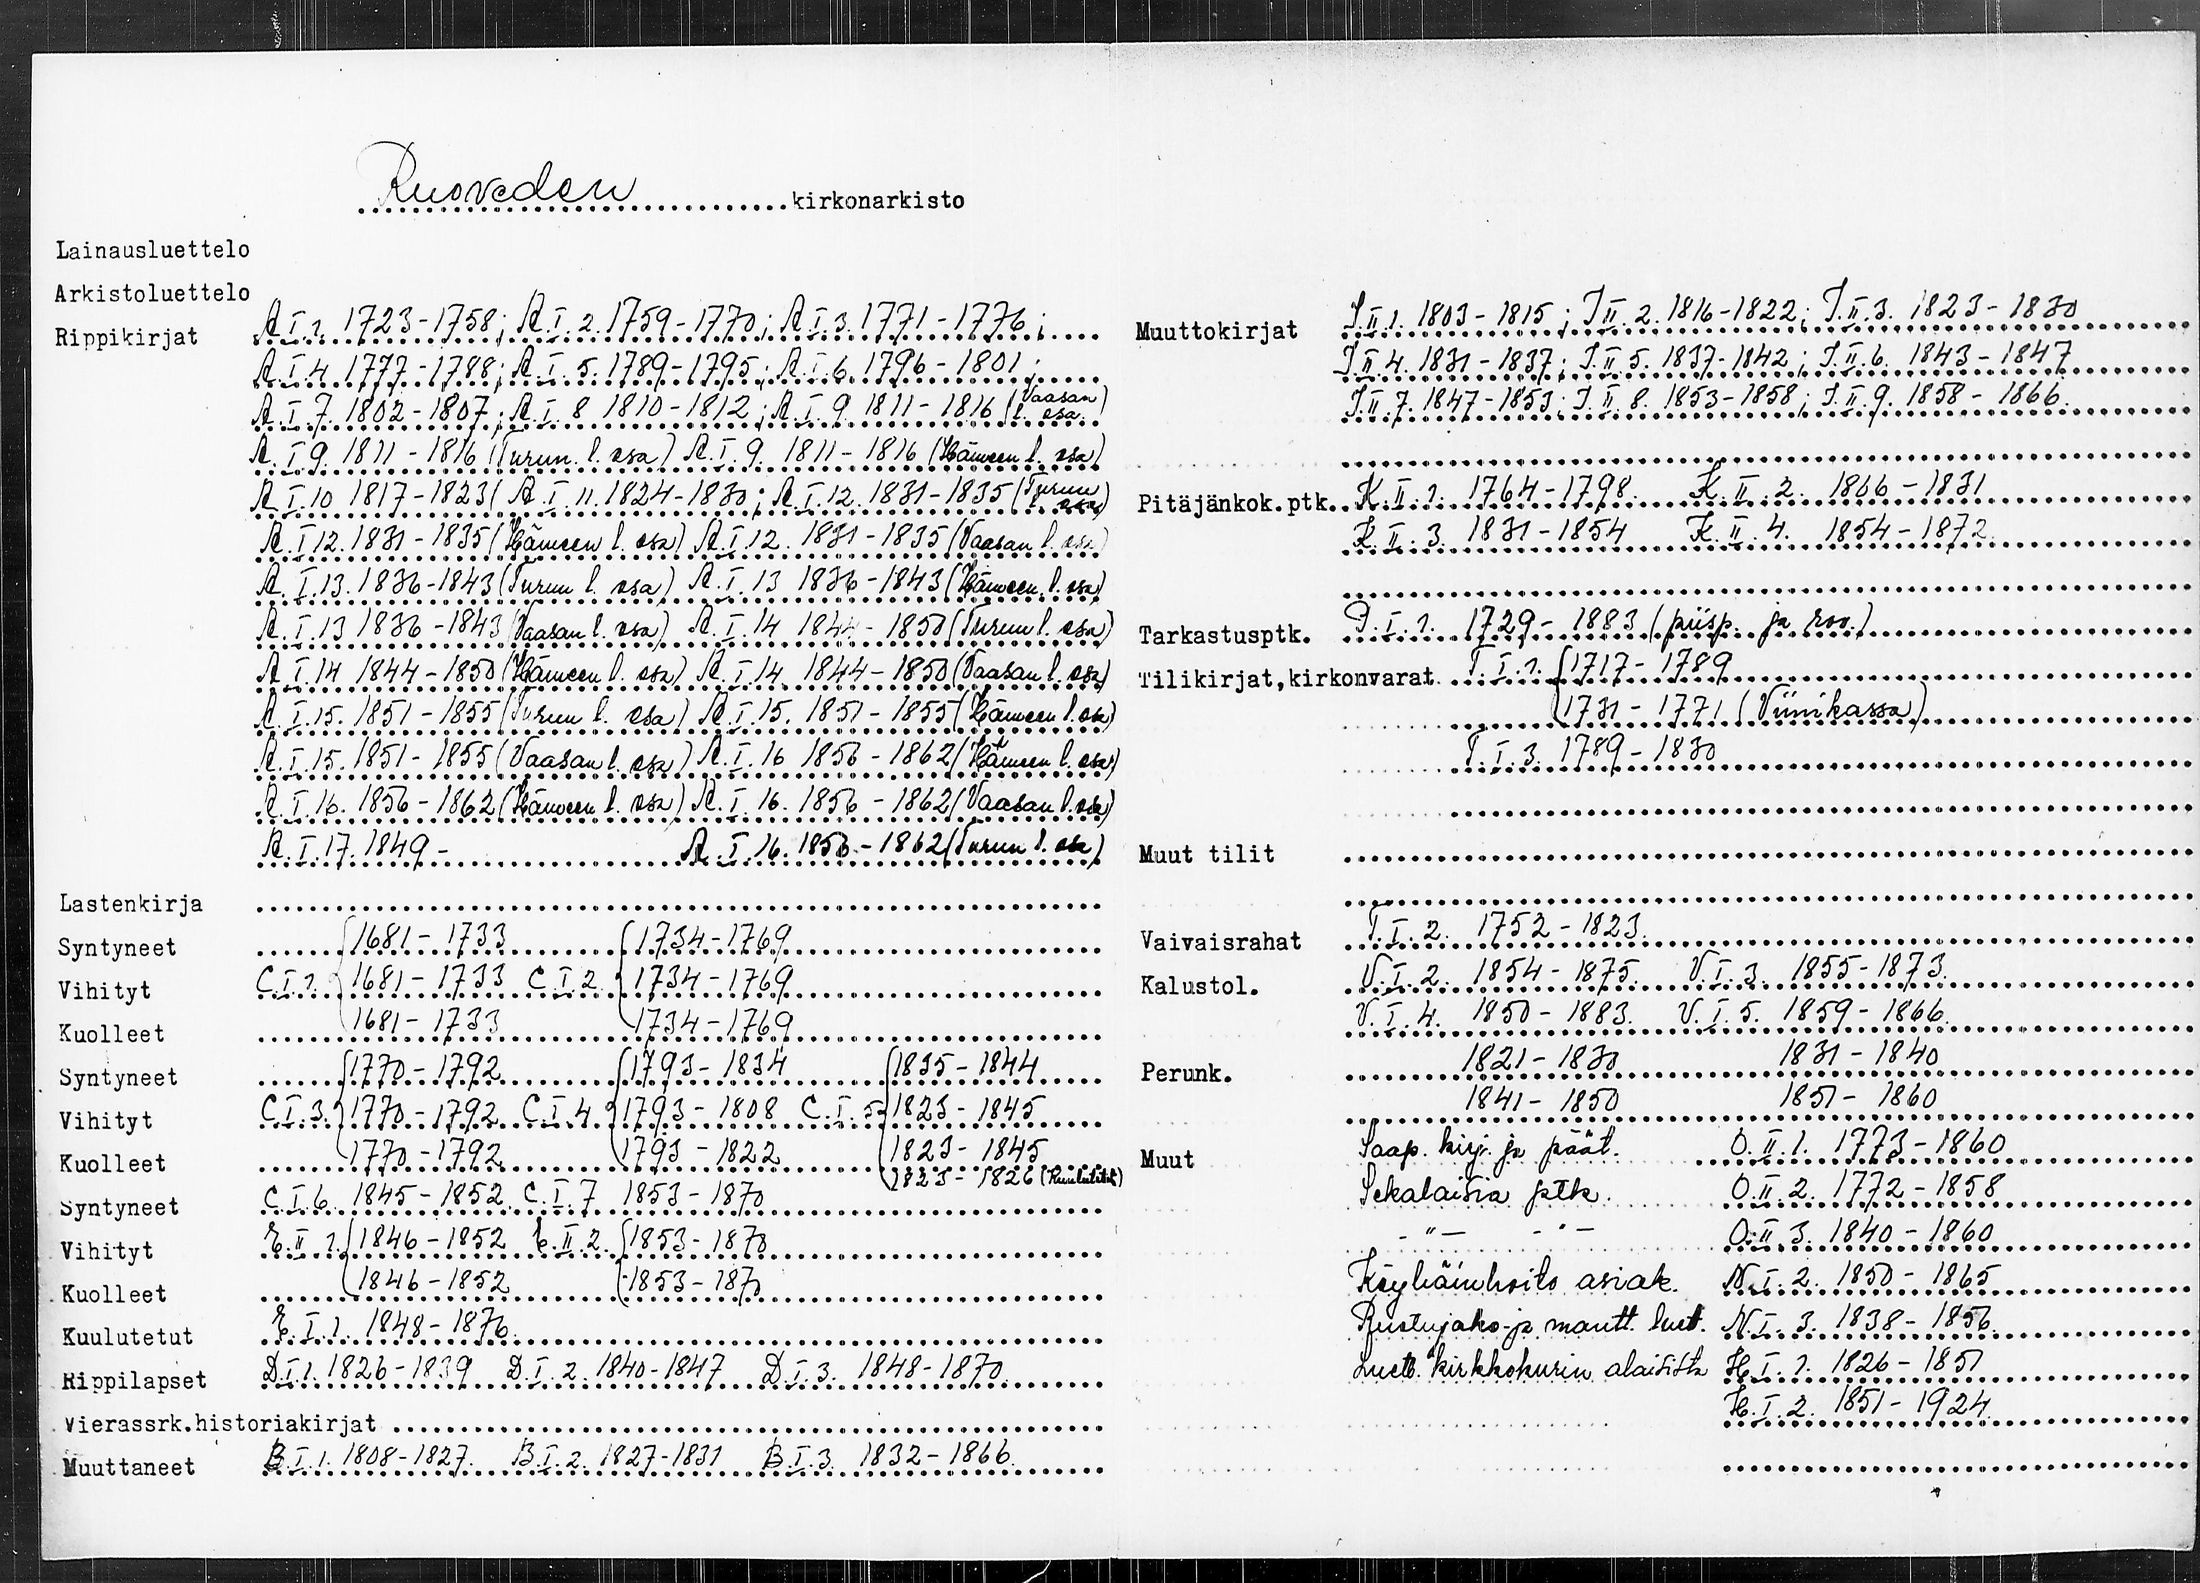 Ruoveden kirkonarkisto
Lainausluettelo
Arkistoluettelo
Rippikirjat A.I.1. 1723-1758; A.I.2. 1759-1770; A.I.3. 1771-1776;
A.I.4. 1777-1788; A.I.5. 1789-1795; A.I.6. 1796-1801;
A.I.7. 1802-1807; A.I.8 1810-1812; A.I.9. 1811-1816 (Vaasan l. osa)
A.I.9. 1811-1816 (Turun l. osa) A.I.9. 1811-1816 (Hämeen l. osa)
A.I.10 1817-1823( A.I.11. 1824-1830; A.I.12. 1831-1835 (Turun osa)
A.I.12. 1831-1835 (Hämeen l. osa) A.I.12. 1831-1835 (Vaasan l. osa)
A.I.13. 1836-1843 (Turun l. osa) A.I.13 1836-1843 (Hämeen l. osa)
A.I.13 1836-1843 (Vaasan l. osa) A.I.14 1844-1850 (Turun l. osa)
A.I.14 1844-1850 (Hämeen l. osa) A.I.14 1844-1850 (Vaasan l. osa)
A.I.15. 1851-1855 (Turun l. osa) A.I.15. 1851-1855 (Hämeen l. osa)
A.I.15. 1851-1855 (Vaasan l. osa) A.I.16 1856-1862 (Hämeen l. osa)
A.I.16. 1856-1862 (Hämeen l. osa) A.I.16. 1856-1862 (Vaasan l. osa)
A.I.17. 1849- A.I.16. 1856-1862 (Turun l. osa)
Lastenkirja
Syntyneet 1681-1733 1734-1769
Vihityt C.I.1. 1681-1733 C.I.2. 1734-1769
Kuolleet 1681-1733 1734-1769
Syntyneet 1770-1792 1793-1834 1835-1844
Vihityt C.I.3. 1770-1792 C.I.4. 1793-1808 C.I.5. 1823-1845
Kuolleet 1770-1792 1793-1822 1823-1845
1823-1826 (Kuulutetut)
Syntyneet C.I.6. 1845-1852 C.I.7 1853-1870
Vihityt E.II.1. 1846-1852 E.II.2. 1853-1870
Kuolleet 1846-1852 1853-1870
Kuulutetut E.I.1. 1848-1876.
Rippilapset D.I.1. 1826-1839 D.I.2. 1840-1847 D.I.3. 1848-1870
Vierassrk.historiakirjat
Muuttaneet B.I.1. 1808-1827. B.I.2. 1827-1831 B.I.3. 1832-1866.
Muuttokirjat I.II.1. 1803-1815; I.II.2. 1816-1822; I.II.3. 1823-1830
I.II.4. 1831-1837; I.II.5. 1837-1842; I.II.6. 1843-1847
I.II.7. 1847-1853; I.II.8. 1853-1858; I.II.9. 1858-1866.
Pitäjänkok.ptk. K.II.1. 1764-1798. K.II.2. 1866-1831
K.II.3. 1831-1854 K.II.4. 1854-1872.
Tarkastusptk. P.I.1. 1729-1883 (piisp. ja rov.)
Tilikirjat,kirkonvarat T.I.1. 1717-1789
1731-1771 (Viinikassa)
T.I.3. 1789-1830
Muut tilit
Vaivaisrahat T.I.2. 1752-1823.
Kalustol. V.I.2. 1854-1875. V.I.3. 1855-1873.
V.I.4. 1850-1883. V.I.5. 1859-1866.
Perunk. 1821-1830 1831-1840
1841-1850 1851-1860
Muut Saap. kirj. ja päät. O.II.1. 1773-1860
Sekalaisia ptk. O.II.2. 1772-1858
-"- -"- O.II.3. 1840-1860
Köyhäinhoito asiak. N.I.2. 1850-1865
Ruotujako-ja mantt. luet. N.I.3. 1838-1856.
Luett. kirkkokurin alaisista H.I.1. 1826-1851
H.I.2. 1851-1924.